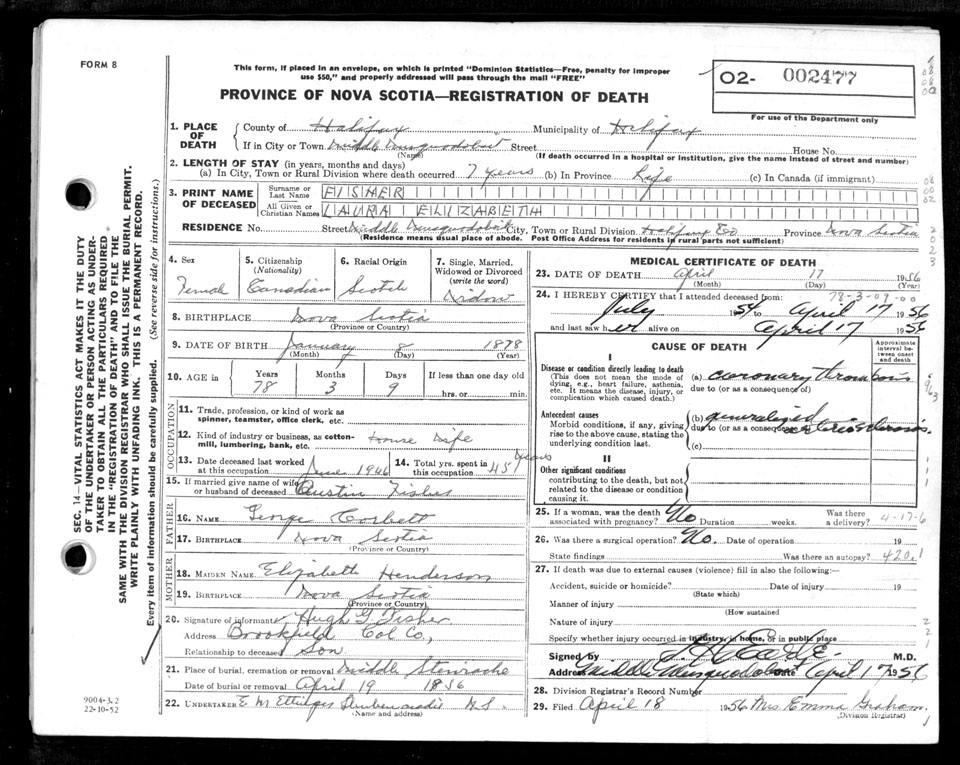 FORM 8
This form, if placed in an envelope, on which is printed "Dominion Statistics—Free, penalty for improper
use $50," and properly addressed will pass through the mail "FREE"
PROVINCE OF NOVA SCOTIA—REGISTRATION OF DEATH
O2- 002477
For use of the Department only
1. PLACE OF DEATH
County of Halifax Municipality of Halifax
If in City or Town Middle Musquodoboit Street House No.
(Name) (If death occurred in a hospital or institution, give the name instead of street and number)
2. LENGTH OF STAY (in years, months and days)
(a) In City, Town or Rural Division where death occurred 7 years (b) In Province Life (c) In Canada (if immigrant)
3. PRINT NAME OF DECEASED
Surname or Last Name FISHER
All Given or Christian Names LAURA ELIZABETH
RESIDENCE No. Street Middle Musquodoboit City, Town or Rural Division Halifax Co Province Nova Scotia
(Residence means usual place of abode. Post Office Address for residents in rural parts not sufficient)
4. Sex
Female
5. Citizenship (Nationality)
Canadian
6. Racial Origin
Scotch
7. Single, Married, Widowed or Divorced (write the word)
Widow
8. BIRTHPLACE Nova Scotia
(Province or Country)
9. DATE OF BIRTH January 8 1878
(Month) (Day) (Year)
10. AGE in Years Months Days If less than one day old
78 3 9 hrs. or min.
OCCUPATION
11. Trade, profession, or kind of work as
spinner, teamster, office clerk, etc.
12. Kind of industry or business, as cotton-
mill, lumbering, bank, etc. House Wife
13. Date deceased last worked at this occupation June 1946
14. Total yrs. spent in this occupation 45 years
15. If married give name of wife
or husband of deceased Austin Fisher
FATHER
16. NAME George Corbett
17. BIRTHPLACE Nova Scotia
(Province or Country)
MOTHER
18. MAIDEN NAME Elizabeth Henderson
19. BIRTHPLACE Nova Scotia
(Province or Country)
20. Signature of informant Hugh G Fisher
Address Brookfield Col Co,
Relationship to deceased Son
21. Place of burial, cremation or removal Middle Stewiacke
Date of burial or removal April 19 1856
22. UNDERTAKER E M Ettinger Shubenacadie N.S.
(Name and address)
MEDICAL CERTIFICATE OF DEATH
23. DATE OF DEATH April 17 1956
(Month) (Day) (Year)
78-3-09-00
24. I HEREBY CERTIFY that I attended deceased from:
July 1954 to April 17 1956
and last saw her alive on April 17 1956
CAUSE OF DEATH
Approximate interval between onset and death
I
Disease or condition directly leading to death
(This does not mean the mode of
dying, e.g., heart failure, asthenia,
etc. It means the disease, injury, or
complication which caused death.)
(a) coronary thrombosis
due to (or as a consequence of)
Antecedent causes
Morbid conditions, if any, giving
rise to the above cause, stating the
underlying condition last.
(b) generalized
due to (or as a consequence of) arteriosclerosis.
(c)
II
Other significant conditions
contributing to the death, but not
related to the disease or condition
causing it.
25. If a woman, was the death
associated with pregnancy? No Duration weeks. Was there a delivery? 4-17-6
26. Was there a surgical operation? No. Date of operation 19
State findings Was there an autopsy? 420.1
27. If death was due to external causes (violence) fill in also the following:—
Accident, suicide or homicide? Date of injury 19
(State which)
Manner of injury
(How sustained
Nature of injury
Specify whether injury occurred in industry, in home, or in public place
Signed by M.D.
Address Middle Musquodoboit Date April 17 1956
28. Division Registrar's Record Number
29. Filed April 18 1956 Mrs Emma Graham.
(Division Registrar)
SEC. 14—VITAL STATISTICS ACT MAKES IT THE DUTY
OF THE UNDERTAKER OR PERSON ACTING AS UNDER-
TAKER TO OBTAIN ALL THE PARTICULARS REQUIRED
IN THE "REGISTRATION OF DEATH" AND TO FILE THE
SAME WITH THE DIVISION REGISTRAR WHO SHALL ISSUE THE BURIAL PERMIT.
WRITE PLAINLY WITH UNFADING INK. THIS IS A PERMANENT RECORD.
Every item of information should be carefully supplied. (See reverse side for instructions.)
9004-3.2
22-10-52